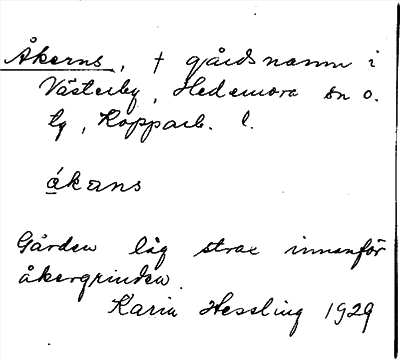 Åkerns, † gårdsnamn i
Västerby, Hedemora sn o.
lg, Kopparb. l.
åkans
Gården låg strax innanför
åkergrinden.
Karin Hessling 1929